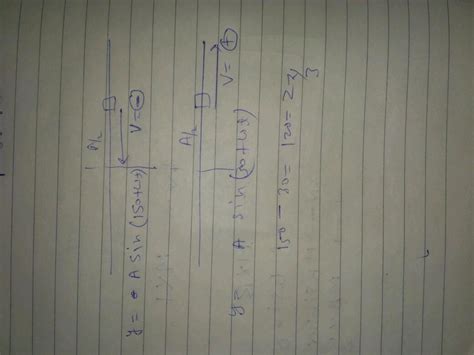 A/2
V = (-)
y = A sin (150+wt)
A/2
V = (+)
y = A sin (30+wt)
150 - 30 = 120 = 2π/3